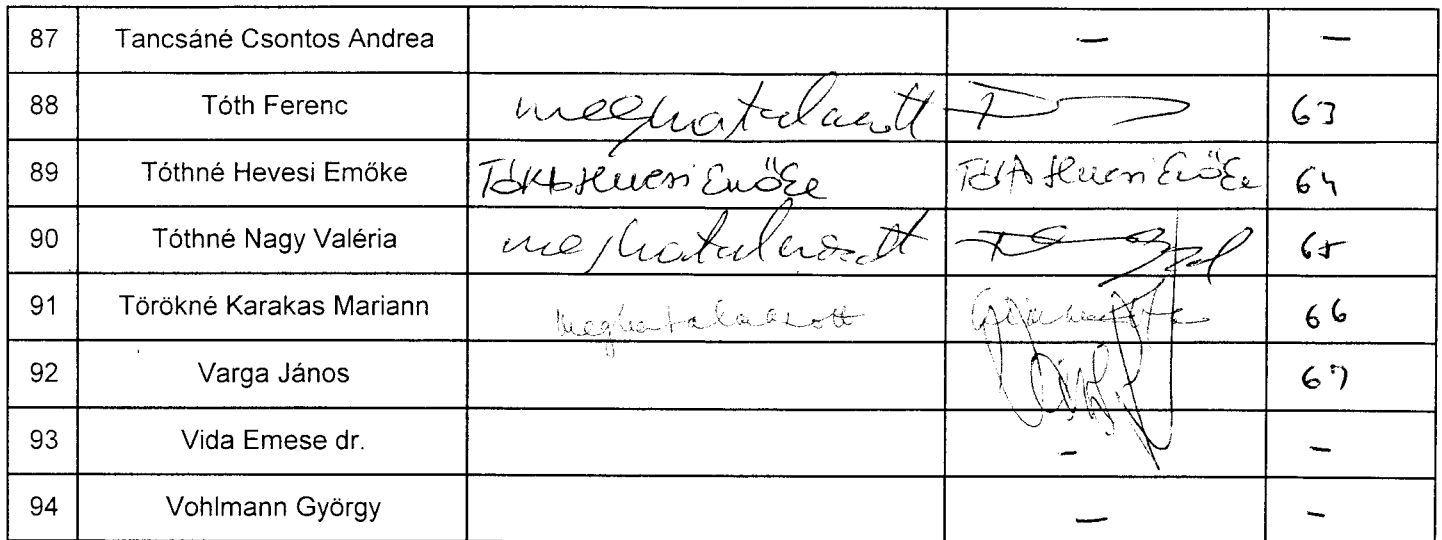 87 Tancsáné Csontos Andrea - -
88 Tóth Ferenc meghatalmazott 63
89 Tóthné Hevesi Emőke Tóthné Hevesi Emőke Tóthné Hevesi Emőke 64
90 Tóthné Nagy Valéria meghatalmazott 65
91 Törökné Karakas Mariann meghatalmazott 66
92 Varga János 67
93 Vida Emese dr. - -
94 Vohlmann György - -